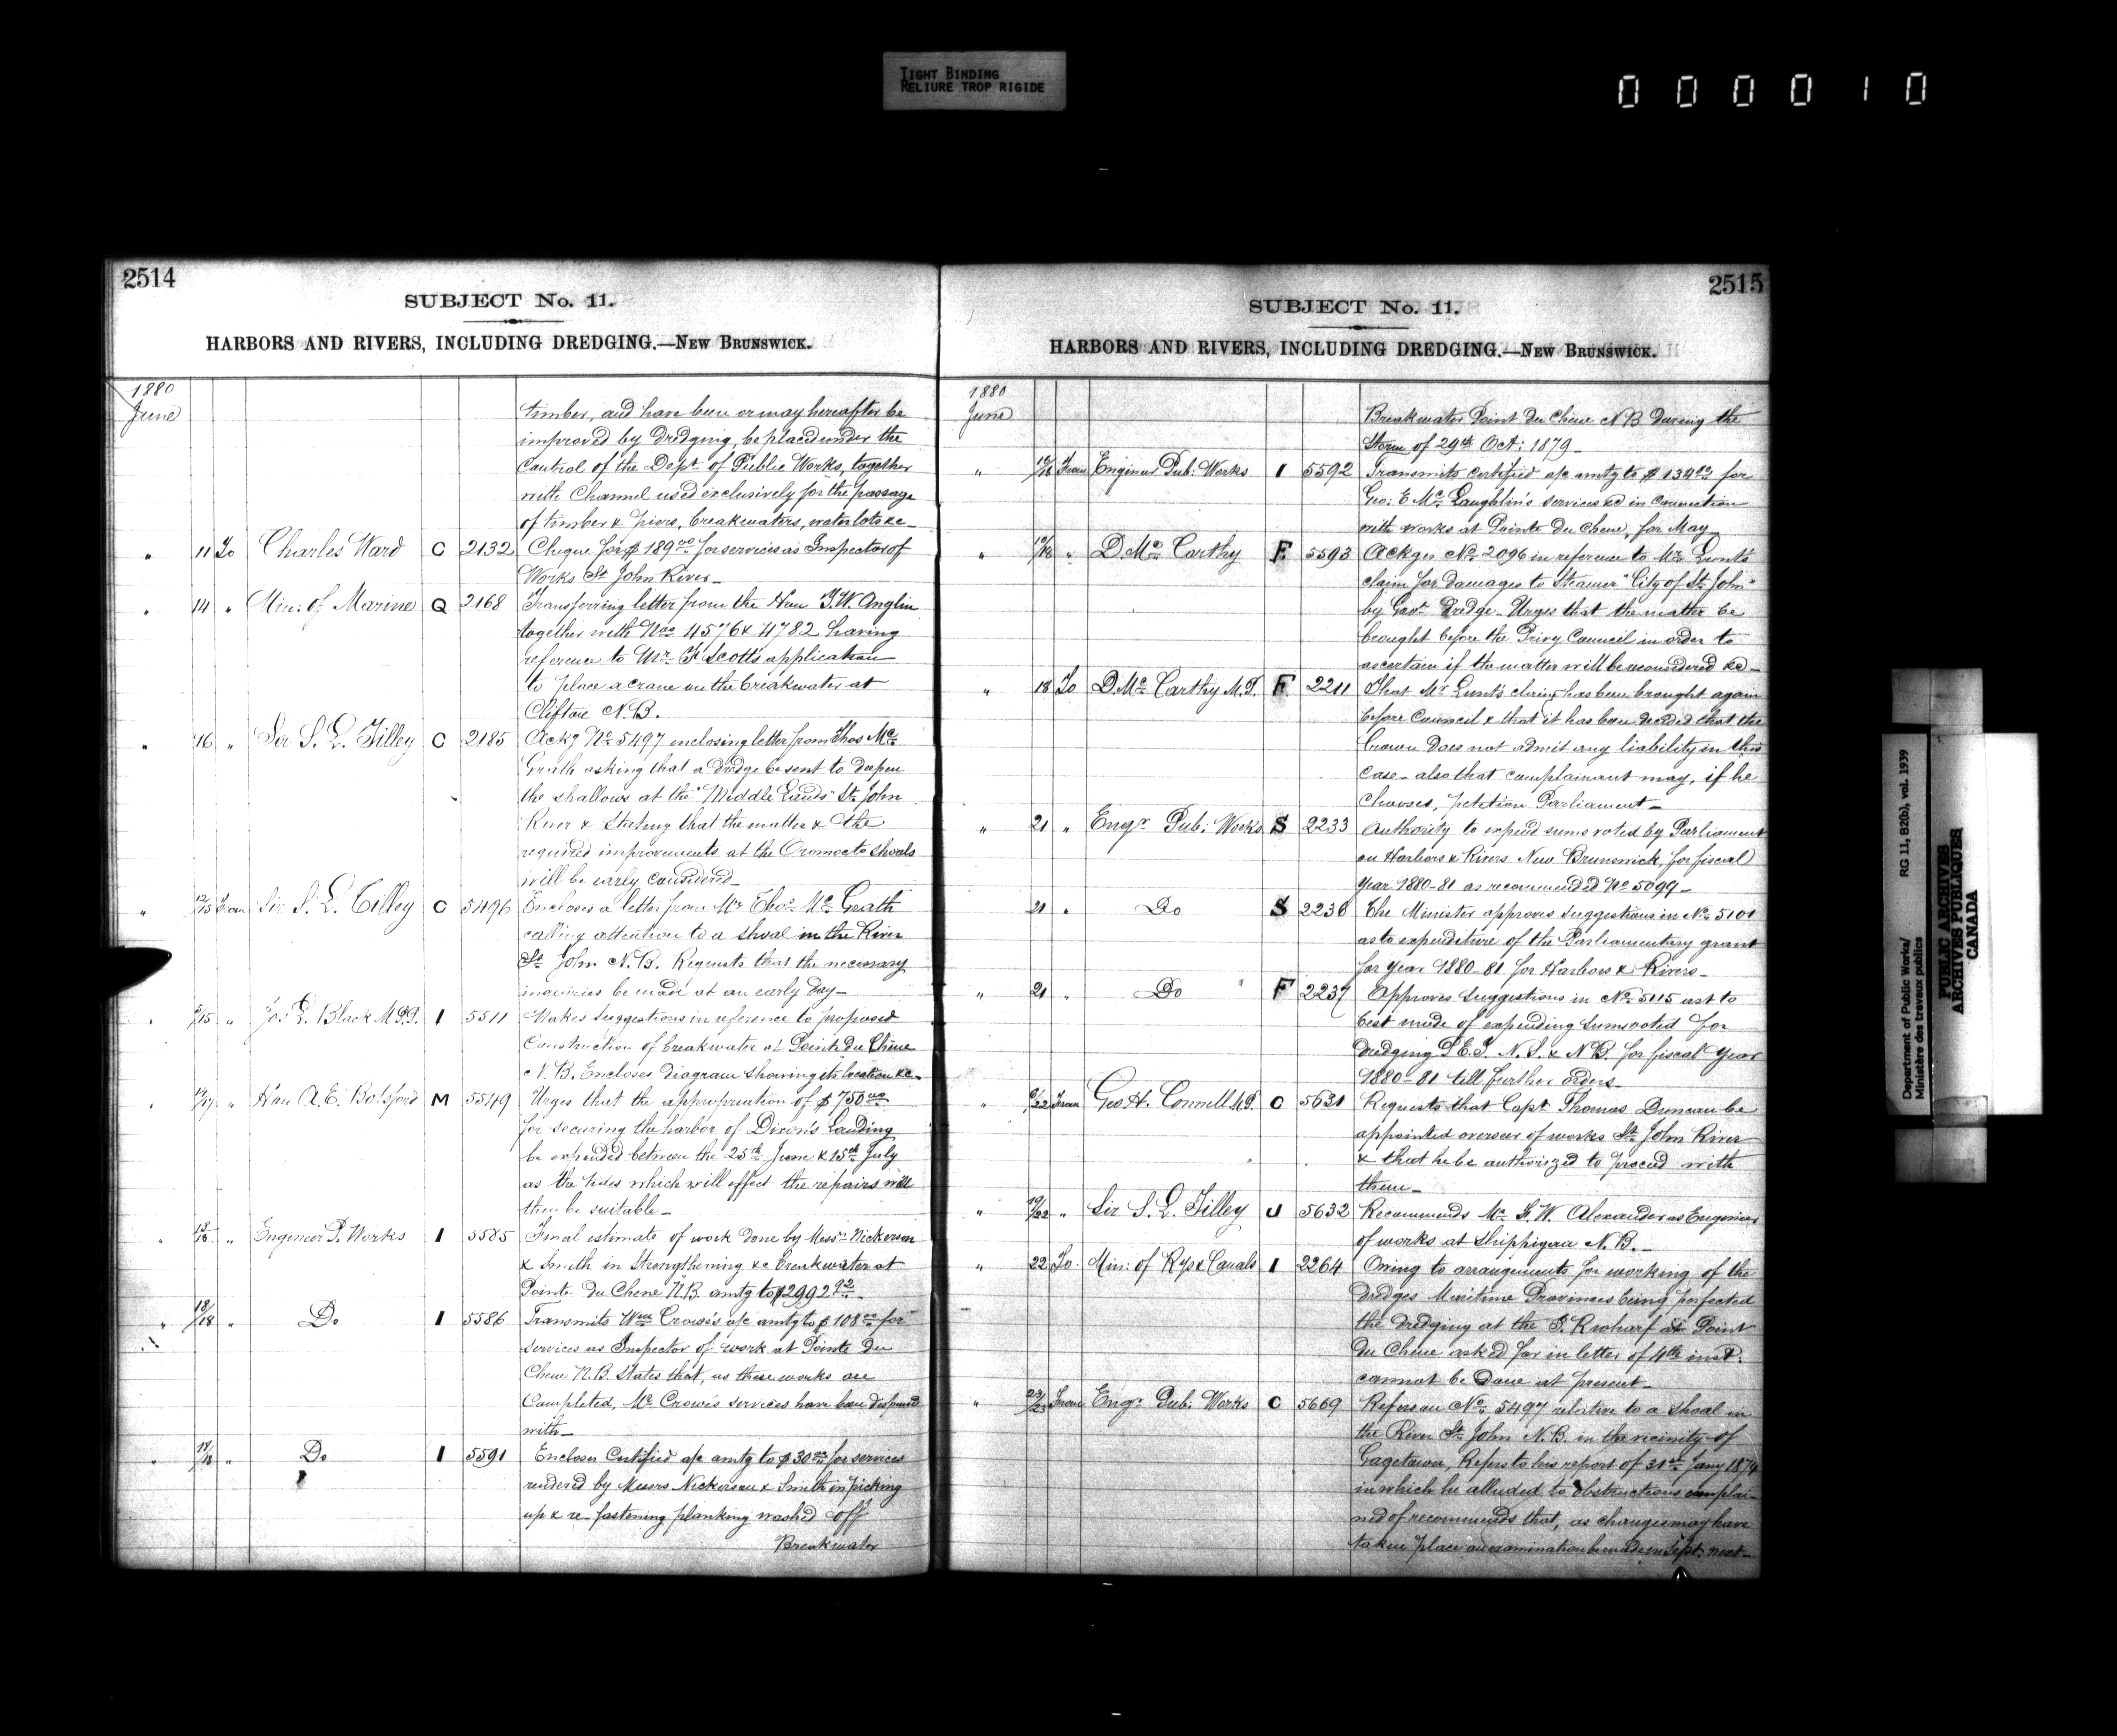 TIGHT BINDING
RELIURE TROP RIGIDE
000010
2514
SUBJECT No. 11.
HARBORS AND RIVERS, INCLUDING DREDGING.—NEW BRUNSWICK.
1880
June
timber, and have been or may hereafter be
improved by dredging, be placed under the
control of the Dept. of Public Works, together
with Channel used exclusively for the passage
of timber & piers, breakwaters, water lots &c—
" 11 To Charles Ward C 2132 Cheque for $189.00 for services as Inspector of
Works St John River—
" 14 " Min: of Marine Q 2168 Transferring letter from the Hon T.W. Anglin
together with Nos 4576 & 4782 having
reference to Mr. Scott's application
to place a crane on the breakwater at
Clifton N.B.
" 16 " Sir S. L. Tilley C 2185 Ackg No 5497 enclosing letter from Thos Mc
Grath asking that a dredge be sent to deepen
the shallows at the "Middle Lands" St. John
River & stating that the matter & the
required improvements at the Oromocto Shoals
will be early considered—
" 12/15 From Sir S. L. Tilley C 5496 Encloses a letter from Mr Thos. Mc Grath
calling attention to a shoal in the River
St. John N.B. Requests that the necessary
inquiries be made at an early day—
" /15 " Jos. L. Black M.P.P. I 5511 Makes suggestions in reference to proposed
Construction of breakwater at Pointe Du Chêne
N.B. Encloses diagram showing its location &c.
" /17 " Hon A. E. Botsford M 5549 Urges that the appropriation of $750.00
for securing the harbor of Dixon's Landing
be expended between the 25th June & 15th July
as the tides which will effect the repairs will
then be suitable—
" 18/18 " Engineer P. Works I 5585 Final estimate of work done by Messrs Nickerson
& Smith in Strengthening &c Breakwater at
Pointe du Chene N.B. amtg to $2992.92—
" 18/18 " Do I 5586 Transmits Wm Crowe's a/c amtg to $108.00 for
services as Inspector of work at Pointe du
Chene N.B. States that, as these works are
Completed, Mr Crowe's services have been dispensed
with—
" 18/18 " Do I 5591 Encloses Certified a/c amtg to $30.00 for services
rendered by Messrs Nickerson & Smith in picking
up & re-fastening planking washed off
Breakwater
2515
SUBJECT No. 11.
HARBORS AND RIVERS, INCLUDING DREDGING.—NEW BRUNSWICK.
1880
June
Breakwater Point Du Chene N B During the
Storm of 29th Oct: 1879—
" /18 From Engineer Pub: Works I 5592 Transmits certified a/c amtg to $134 for
Geo: E McLaughlin's services &c in connection
with works at Pointe Du Chene, for May
" /18 " D. McCarthy F 5593 Ackges No 2096 in reference to Mr Lunt's
claim for damages to Steamer "City of St. John"
by Govt Dredge— Urges that the matter be
brought before the Privy Council in order to
ascertain if the matter will be reconsidered &c—
" 18 To D. McCarthy M.P. F 2211 That Mr Lunt's claim has been brought again
before Council & that it has been decided that the
Crown does not admit any liability in this
case— also that complainant may, if he
chooses, petition Parliament—
" 21 " Engr Pub: Works S 2233 Authority to expend sums voted by Parliament
on Harbors & Rivers New Brunswick, for fiscal
year 1880-81 as recommended No 5099—
21 " Do S 2236 The Minister approves suggestions in No 5101
as to expenditure of the Parliamentary grant
for year 1880-81 for Harbors & Rivers—
" 21 " Do " F 2237 Approves suggestions in No 5115 as to
best mode of expending sums voted for
dredging P.E.I. N.S. & N.B. for fiscal year
1880-81 till further orders
" /22 From Geo H. Connell M.P. C 5631 Requests that Capt Thomas Duncan be
appointed overseer of works St. John River
& that he be authorized to proceed with
them—
" 19/22 " Sir S. L. Tilley U 5632 Recommends Mr F. W. Alexander as Engineer
of works at Shippigan N.B.—
" 22 To Min: of Rys & Canals I 2264 Owing to arrangements for working of the
dredges Maritime Provinces being perfected
the dredging at the I. R wharf at Point
Du Chene asked for in letter of 4th inst.
cannot be done at present—
" 23/23 From Engr Pub: Works C 5669 Refers on No 5497 relative to a shoal in
the River St. John N.B. in the vicinity of
Gagetown, Refers to his report of 31st Jany 1874
in which he alluded to obstructions complai-
ned of recommends that, as changes may have
taken place an examination be made in Sept: next—
Department of Public Works/ RG 11, B2(b), vol. 1939
Ministère des travaux publics
PUBLIC ARCHIVES
ARCHIVES PUBLIQUES
CANADA